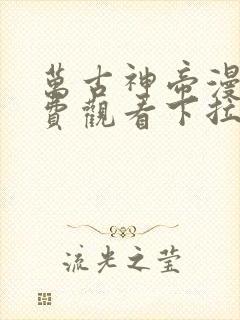 萬古神帝漫
費觀看下拉
流光之莹